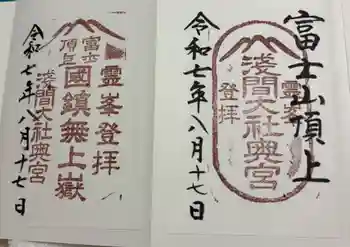 富士山頂上
霊峯登拝
浅間大社奥宮
令和七年八月十七日
霊峯登拝
國鎮無上嶽
富士頂上
浅間大社奥宮
令和七年八月十七日